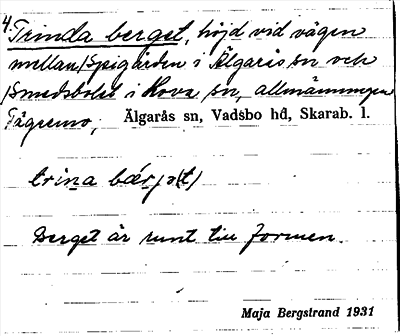 4. Trinda berget, höjd vid vägen
mellan Spigården i Älgarås sn och
Smedsbolet i Hova sn, allmänningen
Tägremo, Älgarås sn, Vadsbo hd, Skarab. l.
trina bær/ə(t)
Berget är runt till formen.
Maja Bergstrand 1931